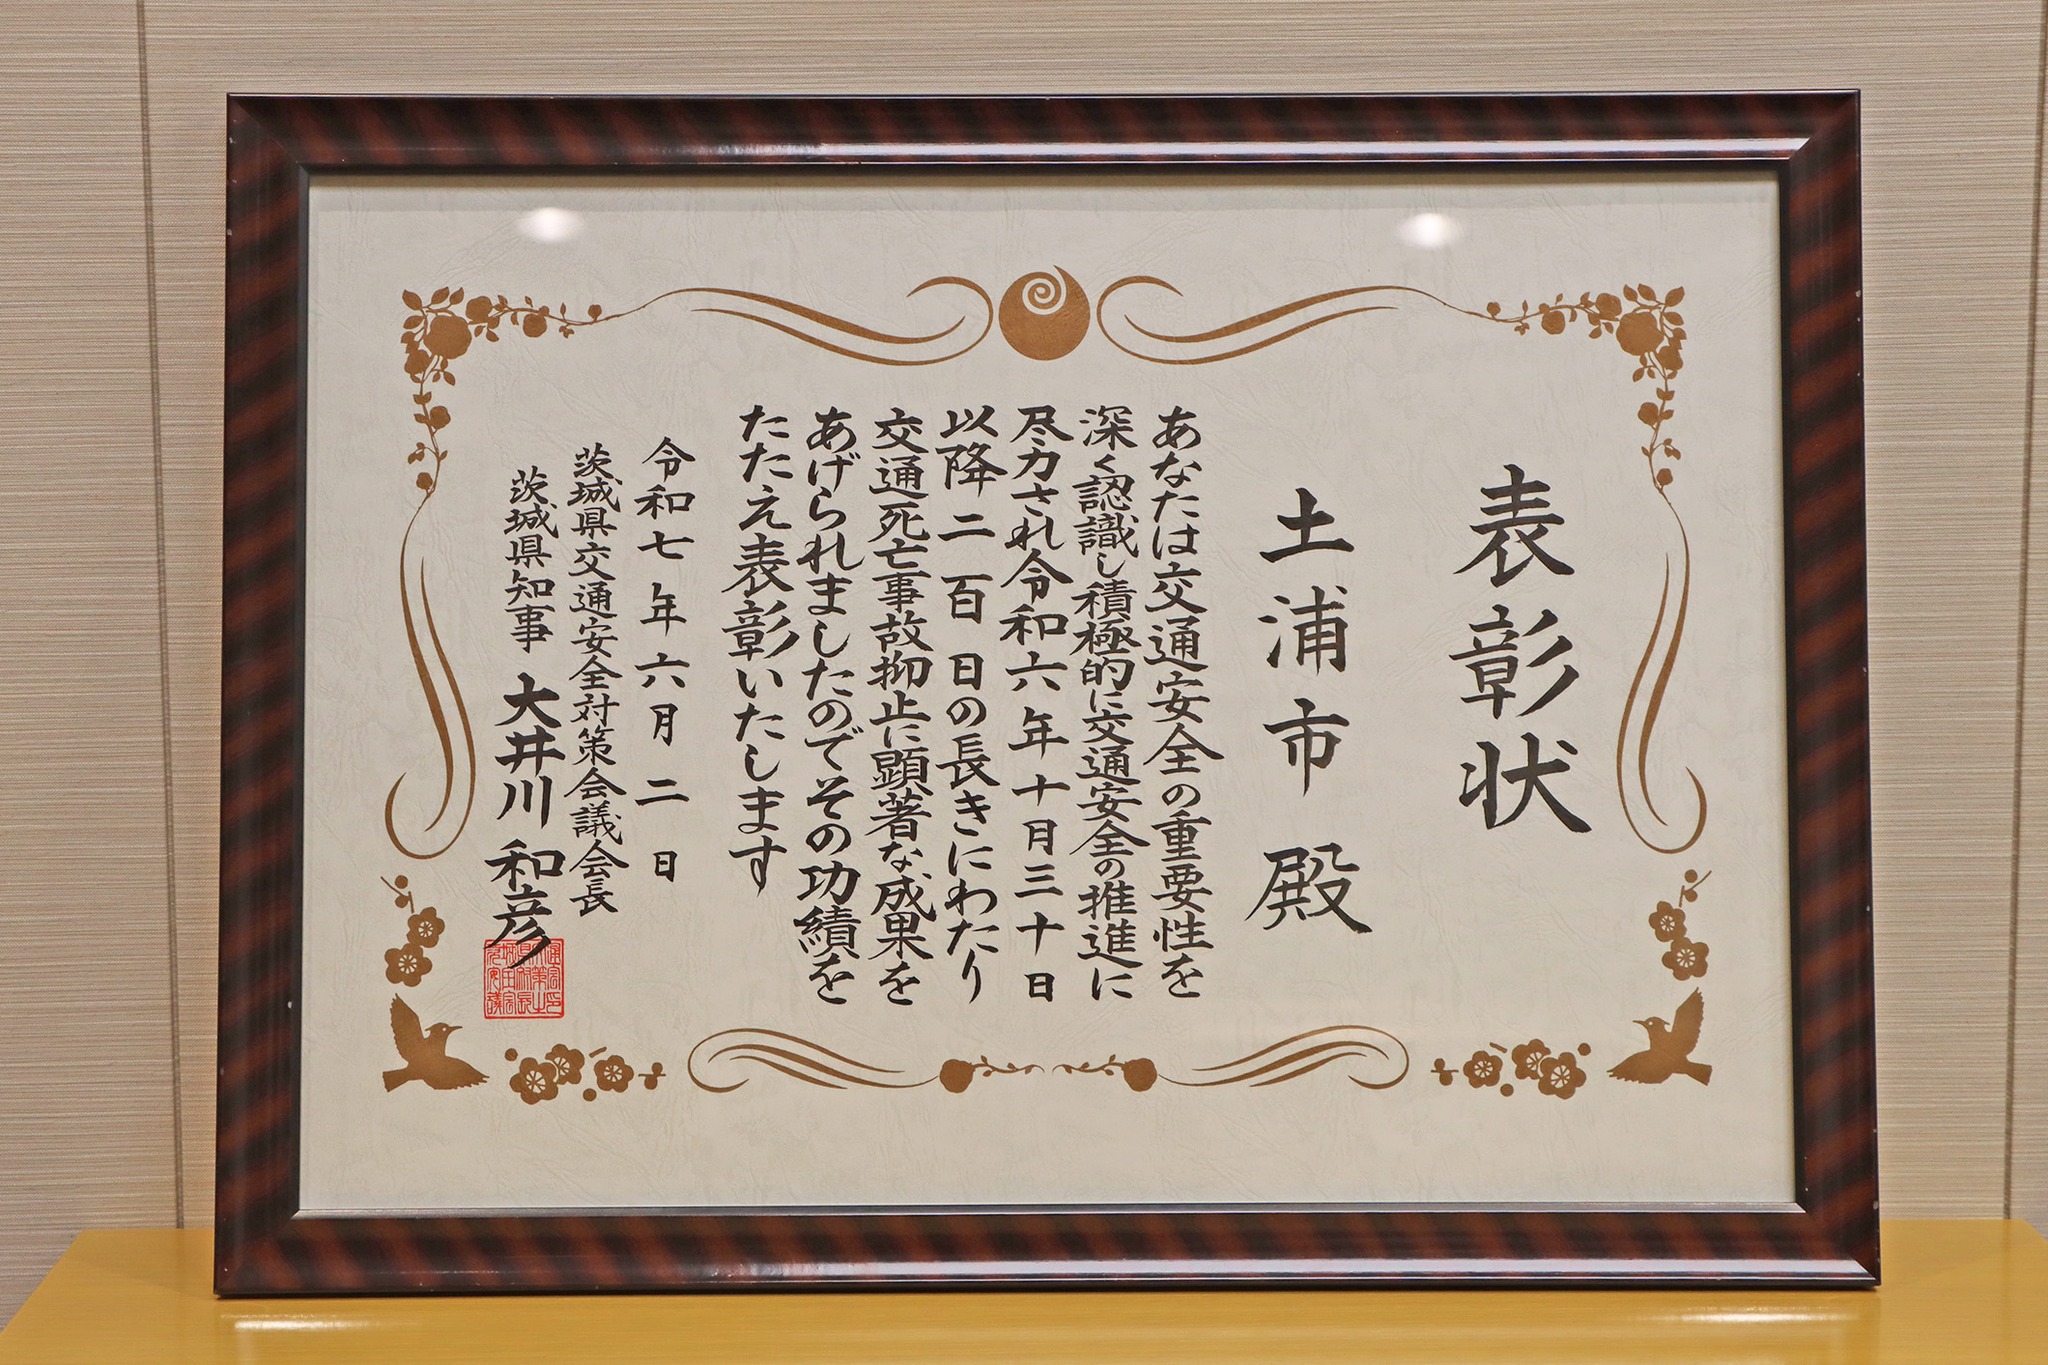 表彰状
土浦市殿
あなたは交通安全の重要性を
深く認識し積極的に交通安全の推進に
尽力され令和六年十月三十日
以降二百日の長きにわたり
交通死亡事故抑止に顕著な成果を
あげられましたのでその功績を
たたえ表彰いたします
令和七年六月二日
茨城県交通安全対策会議会長
茨城県知事 大井川和彦